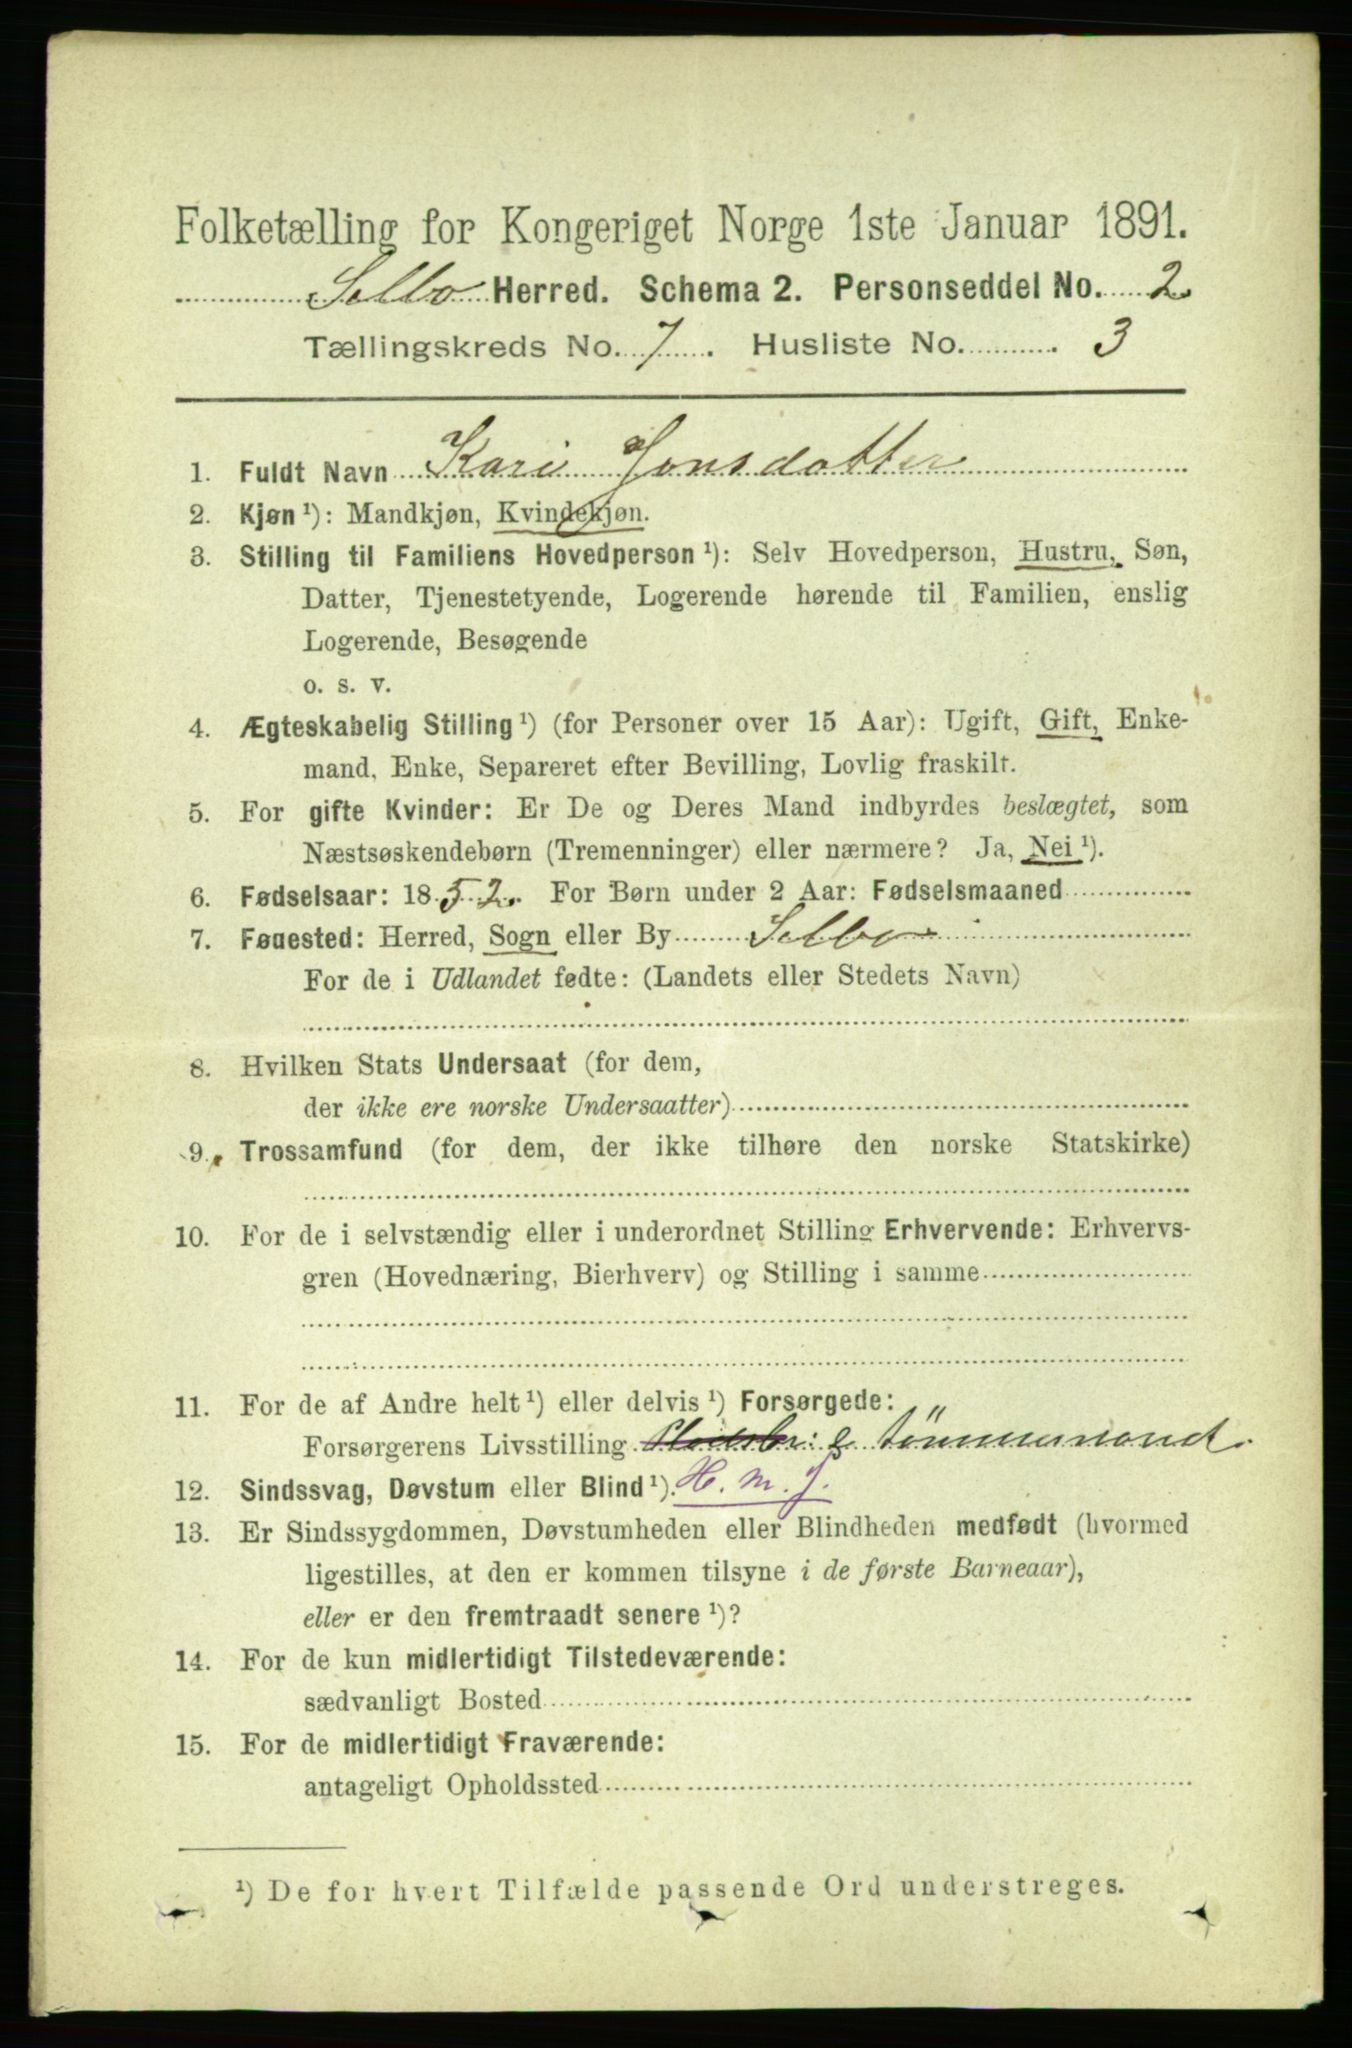 Folketælling for Kongeriget Norge 1ste Januar 1891.
Selbo Herred. Schema 2. Personseddel No. 2
Tællingskreds No. 7. Husliste No. 3
1. Fuldt Navn Kari Jonsdatter
2. Kjøn ¹): Mandkjøn, Kvindekjøn.
3. Stilling til Familiens Hovedperson ¹): Selv Hovedperson, Hustru, Søn,
Datter, Tjenestetyende, Logerende hørende til Familien, enslig
Logerende, Besøgende
o. s. v.
4. Ægteskabelig Stilling ¹) (for Personer over 15 Aar): Ugift, Gift, Enke-
mand, Enke, Separeret efter Bevilling, Lovlig fraskilt.
5. For gifte Kvinder: Er De og Deres Mand indbyrdes beslægtet, som
Næstsøskendebørn (Tremenninger) eller nærmere? Ja, Nei ¹).
6. Fødselsaar: 1852. For Børn under 2 Aar: Fødselsmaaned
7. Fødested: Herred, Sogn eller By Selbo
For de i Udlandet fødte: (Landets eller Stedets Navn)
8. Hvilken Stats Undersaat (for dem,
der ikke ere norske Undersaatter)
9. Trossamfund (for dem, der ikke tilhøre den norske Statskirke)
10. For de i selvstændig eller i underordnet Stilling Erhvervende: Erhvervs-
gren (Hovednæring, Bierhverv) og Stilling i samme
11. For de af Andre helt ¹) eller delvis ¹) Forsørgede:
Forsørgerens Livsstilling tömmermand.
12. Sindssvag, Døvstum eller Blind ¹). H. m. J.
13. Er Sindssygdommen, Døvstumheden eller Blindheden medfødt (hvormed
ligestilles, at den er kommen tilsyne i de første Barneaar),
eller er den fremtraadt senere ¹)?
14. For de kun midlertidigt Tilstedeværende:
sædvanligt Bosted
15. For de midlertidigt Fraværende:
antageligt Opholdssted
¹) De for hvert Tilfælde passende Ord understreges.